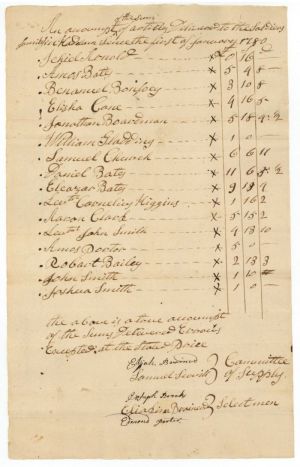 An account of the Sum
of articles Delivered to the Soldiers
families Haddam Since the first of January 1780
Jehiel Arnold x 0 16
Amos Bates x 5 4 8
Benanuel Bonfoey x 3 10 8
Elisha Cone x 4 16 5
Jonathan Boardman x 5 18 4 ½
William Gladding x 1 0
Samuel Church x 6 6 11
Daniel Bates x 11 6 5 ½
Eleazar Bates x 9 19 4
Leut Cornelius Higgins x 1 16 2
Aaron Clark x 5 15 2
Leut John Smith x 4 13 10
Amos Doctor x 5 0
Robart Bailey x 2 13 3
John Smith x 1 10
Joshua Smith x 1 0
the above is a true accoumpt
of the Sums Delivered Errors
Excepted at the Stated Price
Elijah Brainerd
Samuel Committee of Supply
Joseph Brooks
Brainerd Selectmen
Edmund Porter